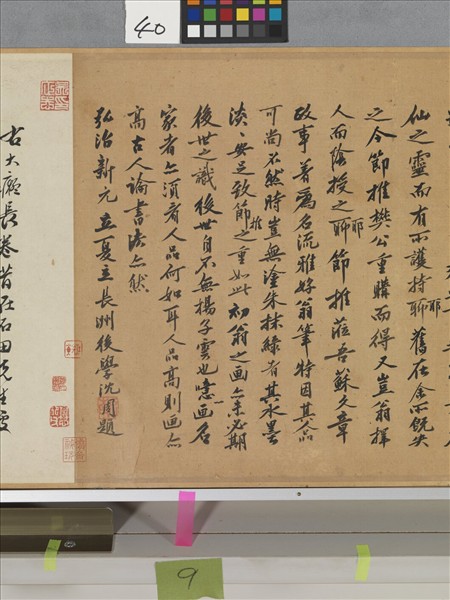 40
仙之靈而有所護持耶舊在余所既失
之今節推樊公重購而得又豈翁擇
人而陰授之耶節推蒞吾蘇文章
政事著為名流雅好翁筆特因其人品
可尚不然時豈無塗朱抹綠者其水墨
淡淡安足致節推之重如此初翁之画亦未必期
後世之識後世自不無揚子雲也噫画名
家者亦須看人品何如耳人品高則画亦
高古人論書法亦然
弘治新元立夏立長洲後學沈周題
右大癡長卷昔在石田先生處
9